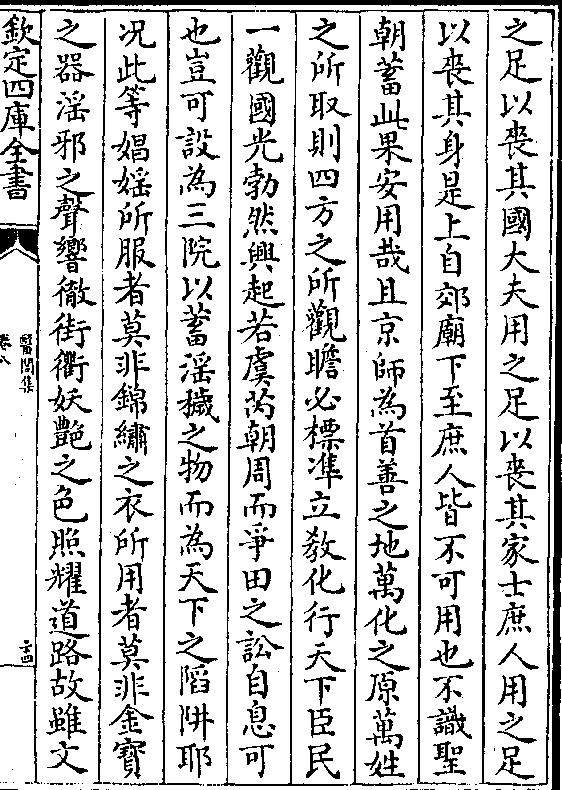 之足以喪其國大夫用之足以喪其家士庶人用之足
以喪其身是上自郊廟下至庶人皆不可用也不識聖
朝蓄此果安用哉且京師為首善之地萬化之原萬姓
之所取則四方之所觀瞻必標準立教化行天下臣民
一觀國光勃然興起若虞芮朝周而爭田之訟自息可
也豈可設為三院以蓄淫穢之物而為天下之陷阱耶
况此等娼婬所服者莫非錦繡之衣所用者莫非金寳
之器淫邪之聲響徹街衢妖艶之色照耀道路故雖文
欽定四庫全書
醫閭集
卷八
二十四